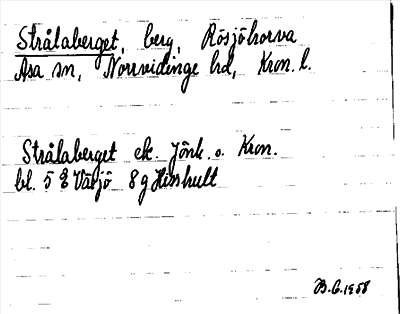 Strålaberget, berg, Rösjöhorva
Asa sn, Norrvidinge hd, Kron. l.
Strålaberget ek. Jönk. o. Kron.
bl. 5 Ö Växjö 8 g Hisshult
B.G. 1958